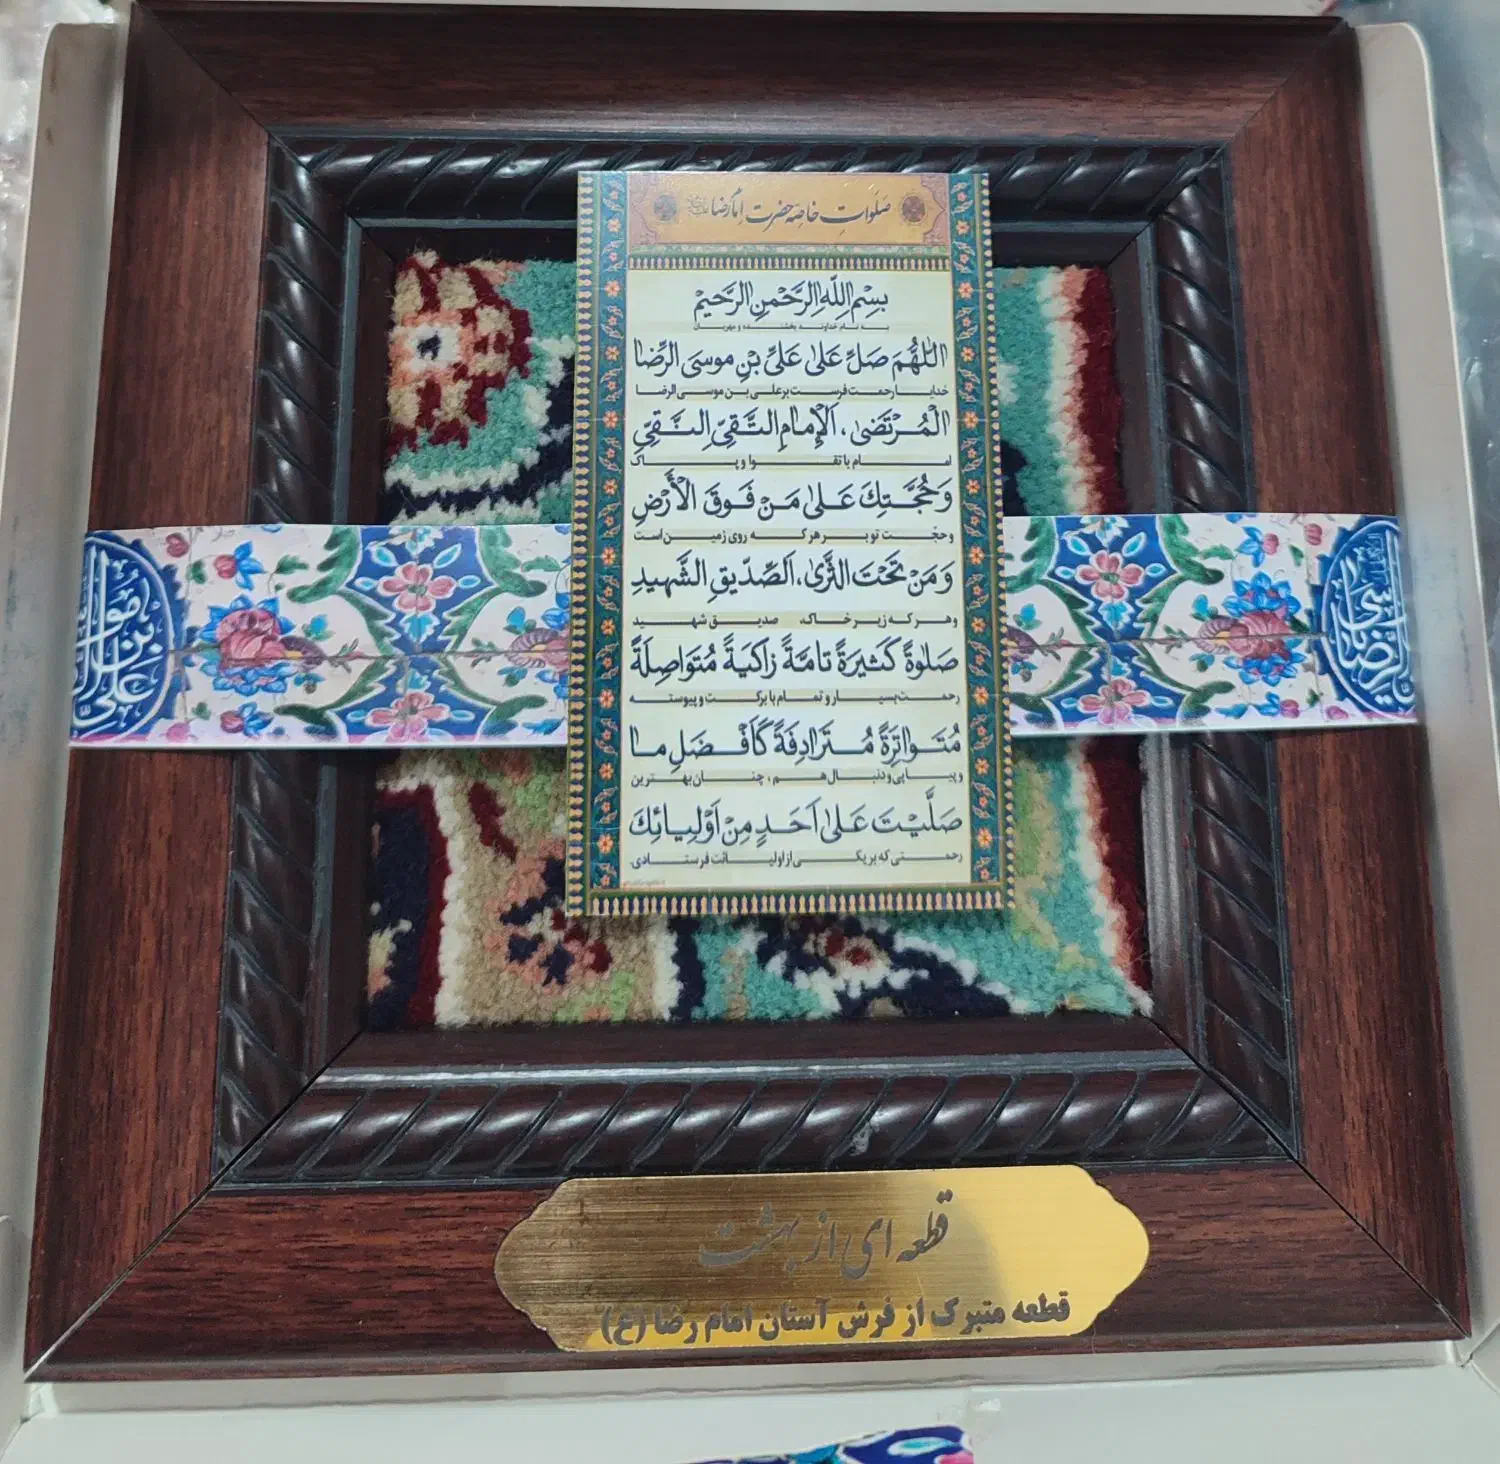 صَلَواتِ خاصّه حضرت امام رضا
بِسْمِ اللهِ الرَّحْمنِ الرَّحيمْ
به نام خداوند بخشنده و مهربان
اَللّهُمَ صَلِّ عَلى عَلىِّ بْنِ موسَى الرِّضا
خدایا رحمت فرست بر علی بن موسی الرضا
الْمُرْتَضى، اَلْإِمامِ التَّقِىِّ النَّقِىِّ
امام با تقوا و پاک
وَ حُجَّتِكَ عَلى مَنْ فَوقَ الْأَرْضِ
و حجت تو بر هر که روی زمین است
وَ مَنْ تَحْتَ الثَّرى، اَلصِّدّيقِ الشَّهيدِ
و هر که زیر خاک، صدیق شهید
صَلوةً كَثيرَةً تامَّةً زاكِيَةً مُتَواصِلَةً
رحمت بسیار و تمام با برکت و پیوسته
مُتَواتِرَةً مُتَرادِفَةً كَاَفْضَلِ ما
و پیاپی و دنبال هم، چنان بهترین
صَلَّيْتَ عَلى اَحَدٍ مِنْ اَوْلِيائِكَ
رحمتی که بر یکی از اولیائت فرستادی.
علی بن موسی الرضا
قطعه ای از بهشت
قطعه متبرک از فرش آستان امام رضا (ع)